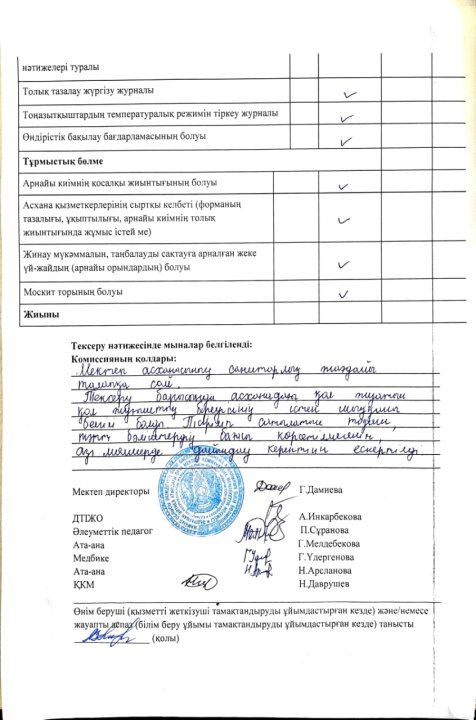 нәтижелері туралы
Толық тазалау жүргізу журналы
Тоңазытқыштардың температуралық режимін тіркеу журналы
Өндірістік бақылау бағдарламасының болуы
Тұрмыстық бөлме
Арнайы киімнің қосалқы жиынтығының болуы
Асхана қызметкерлерінің сыртқы келбеті (форманың
тазалығы, ұқыптылығы, арнайы киімнің толық
жиынтығында жұмыс істей ме)
Жинау мүкәммалын, таңбалауды сақтауға арналған жеке
үй-жайдың (арнайы орындардың) болуы
Москит торының болуы
Жиыны
Тексеру нәтижесінде мыналар белгіленді:
Комиссияның қолдары:
Мектеп асханасының санитарлық жағдайы
талапқа сай.
Тексеру барысында асханадағы қол жуатын
қол
бөлім
аз мөлшерде дайындау керектігін ескертілді
Мектеп директоры Г.Дамиева
ДТІЖО А.Инкарбекова
Әлеуметтік педагог П.Сұранова
Ата-ана Г.Мелдебекова
Медбике Г.Үдергенова
Ата-ана Н.Арсланова
ҚКМ Н.Даврушев
Өнім беруші (қызметті жеткізуші тамақтандыруды ұйымдастырған кезде) және/немесе
жауапты аспаз (білім беру ұйымы тамақтандыруды ұйымдастырған кезде) танысты
(қолы)